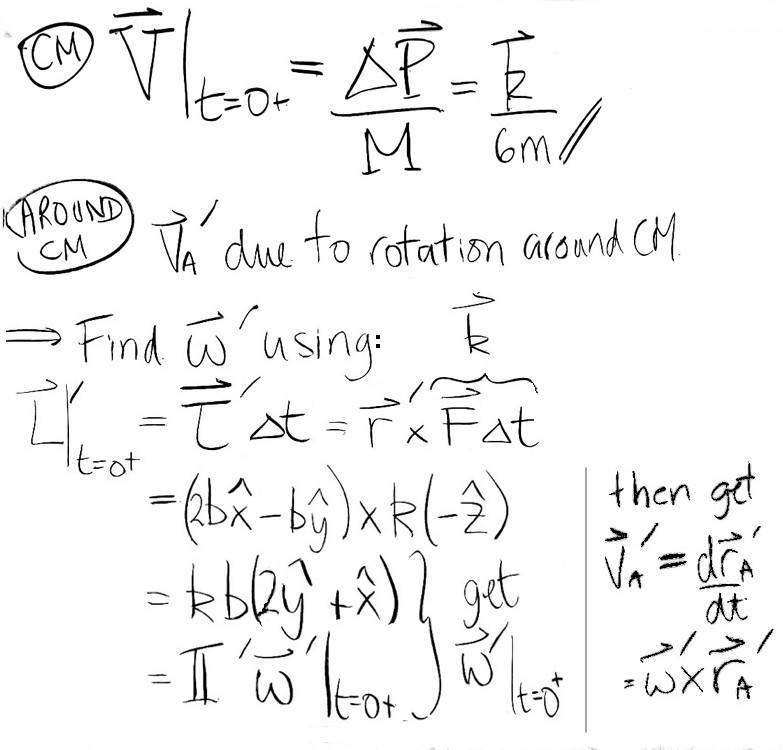 CM V⃗|t=0+ = ΔP⃗/M = k⃗/6m //
AROUND CM V⃗A′ due to rotation around CM.
⇒ Find ω⃗′ using: k⃗
L⃗′|t=0+ = τ⃗′Δt = r⃗′×F⃗Δt
= (2bx̂-bŷ)×k(-ẑ)
= kb(2ŷ+x̂) } get
= II′ω⃗′|t=0+ ω⃗′|t=0+
then get
v⃗A′ = dr⃗A′/dt
= ω⃗′×r⃗A′